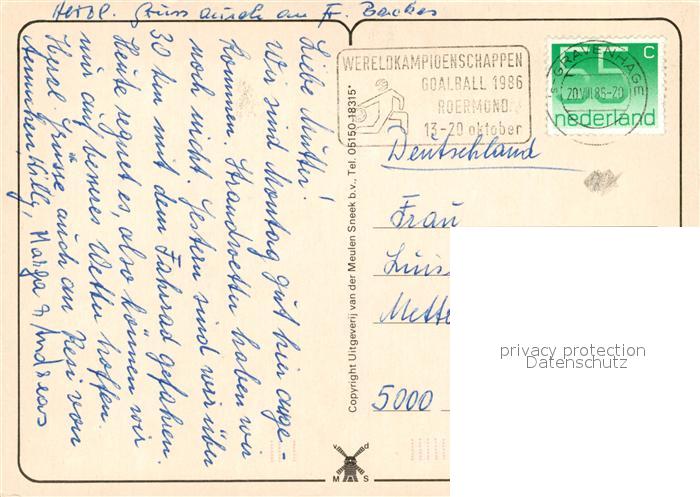 Herzl. Gruss auch an Fr. Backes
Liebe Mutter!
Wir sind Montag gut hier ange-
kommen Strandwetter haben wir
noch nicht. Gestern sind wir über
30 km mit dem Fahrrad gefahren.
Heute regnet es, also können wir
nur auf besseres Wetter hoffen.
Herzl. Grüsse auch an Resi von
Aennchen, Willy, Marga & Andreas
Copyright Uitgeverij van der Meulen Sneek b.v., Tel. 05150-18315*
WERELDKAMPIOENSCHAPPEN
GOALBALL 1986
ROERMOND
13-20 oktober
'S-GRAVENHAGE
20.VIII.86-20
55 C
nederland
Deutschland
Frau
Luis
Mette
5000
privacy protection
Datenschutz
v d
M S